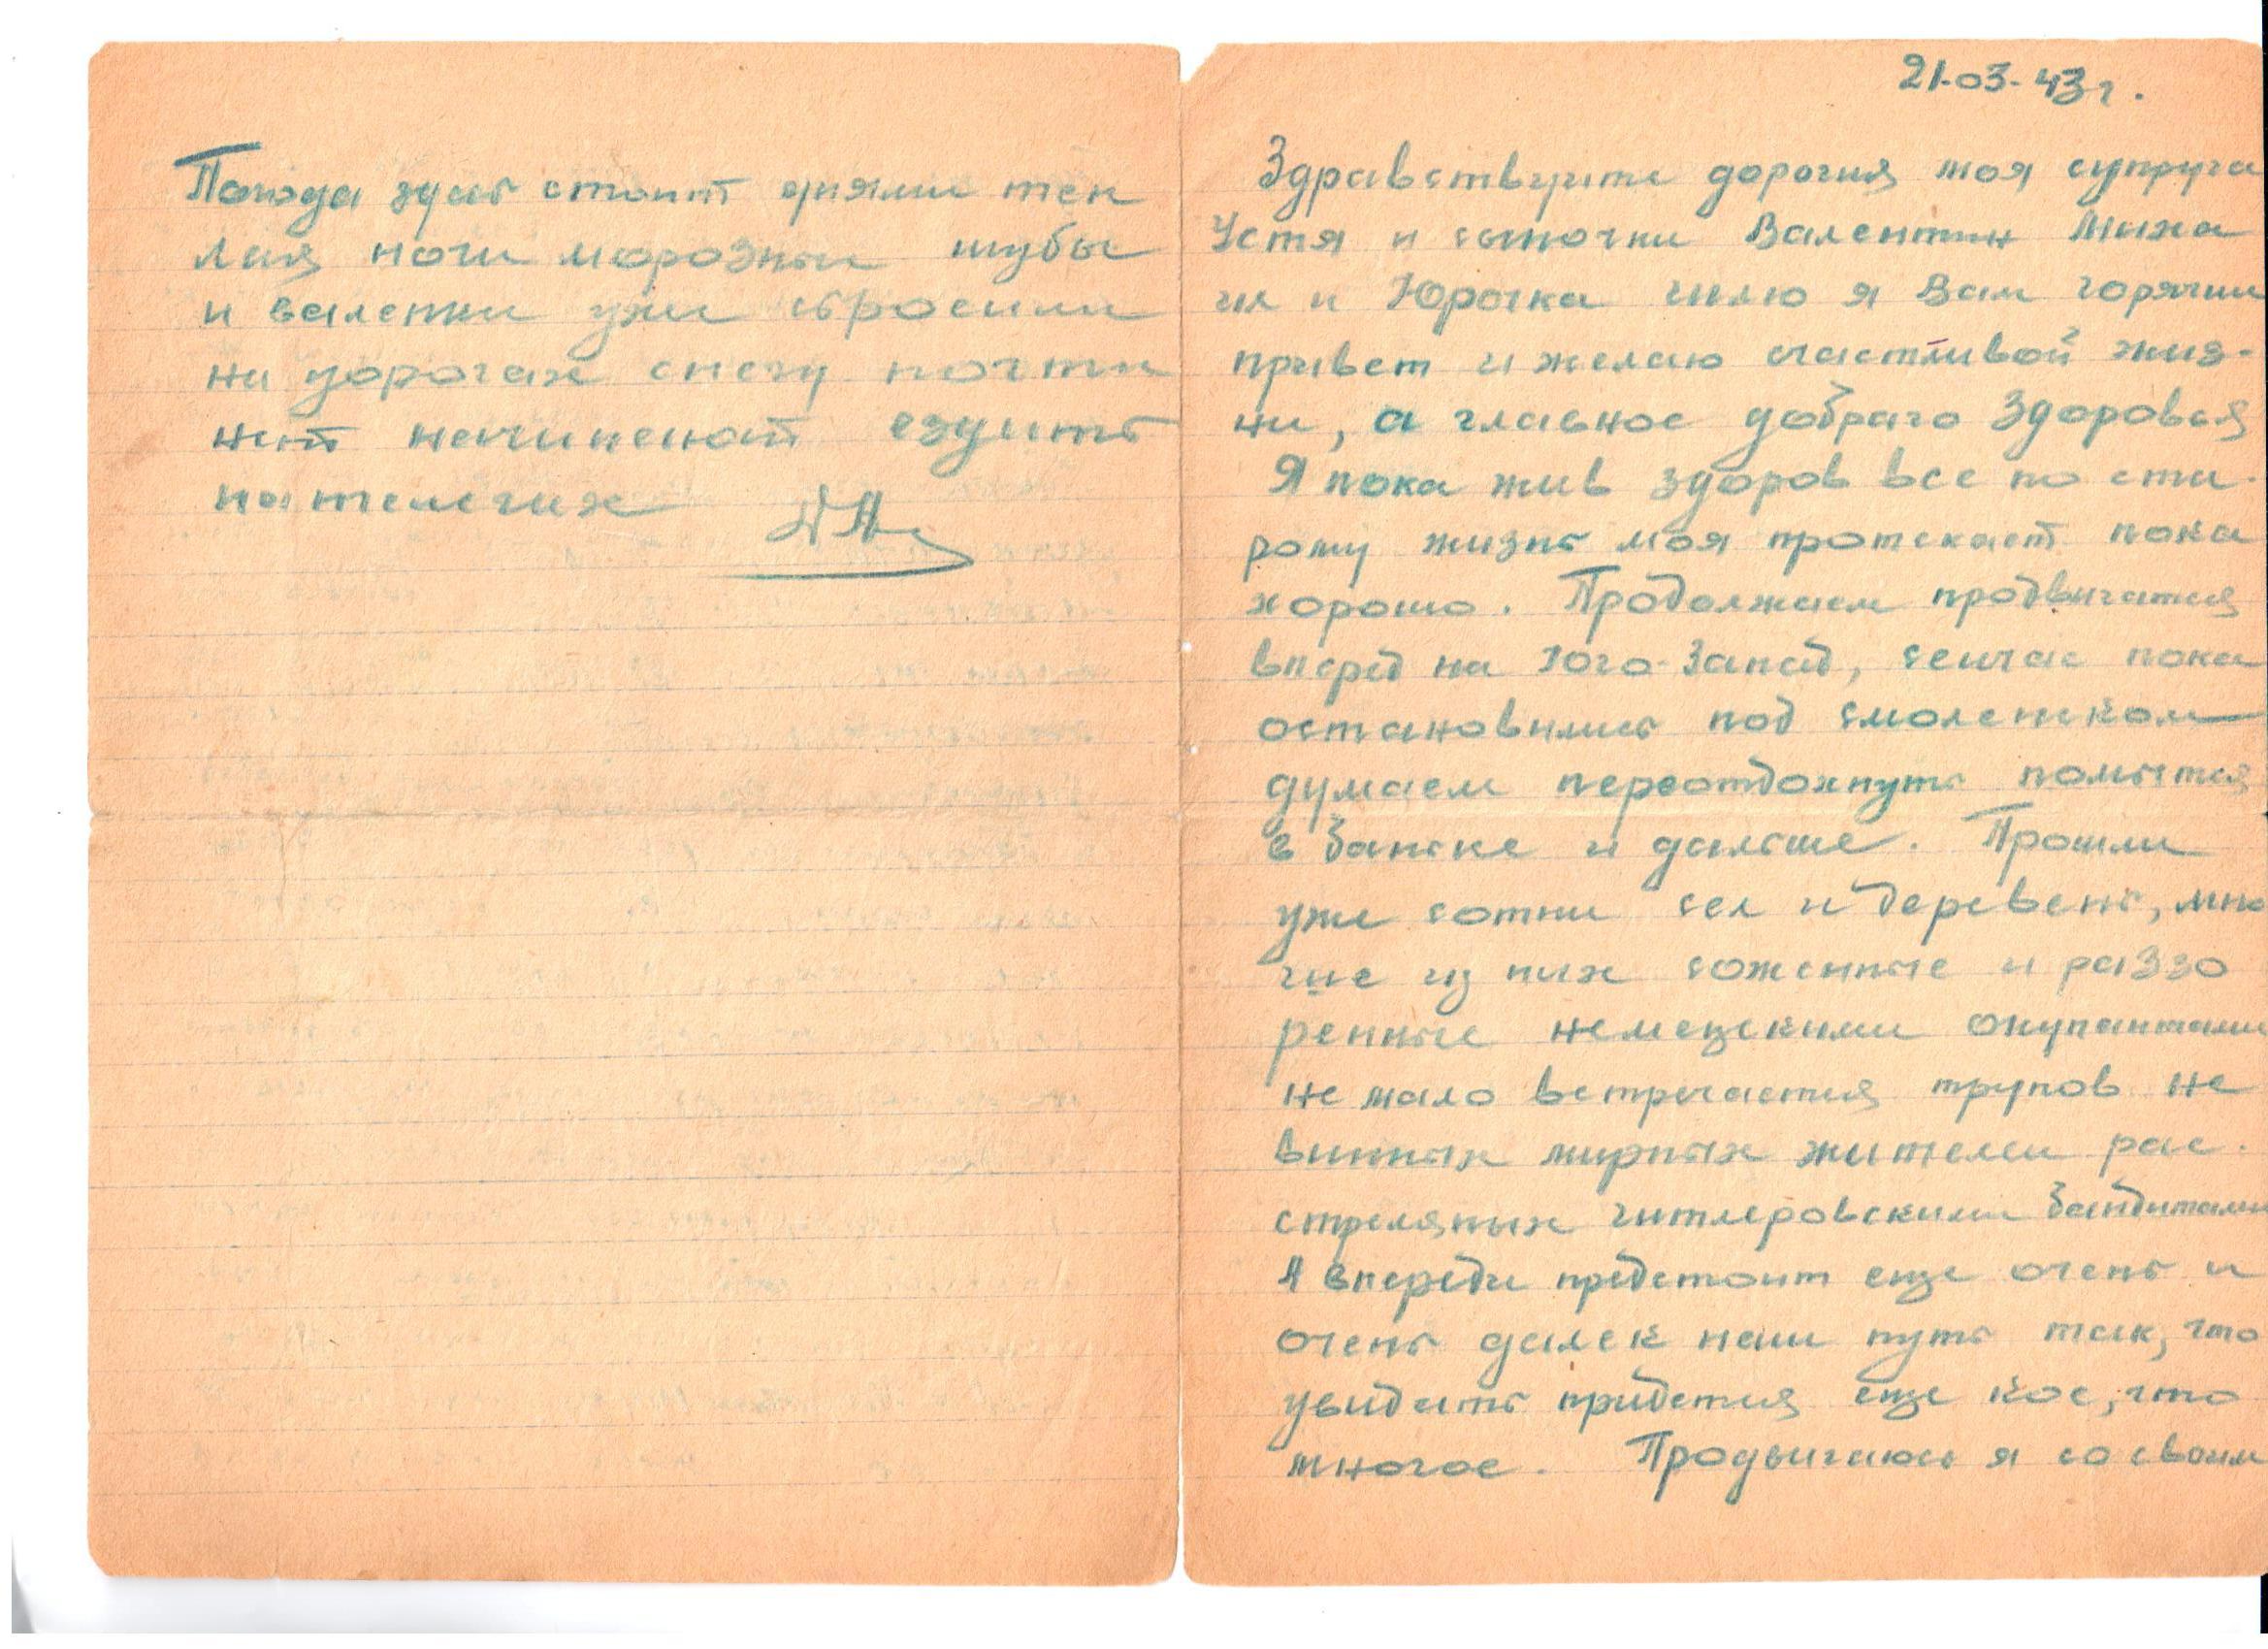 Погода здесь стоит днями теп
лая ночи морозныи шубы
и валенки уже сбросили
на дорогах снегу почти
нет начинают ездить
на телегах
21-03-43 г.
Здравствуите дорогия моя супруга
Устя и сыночки Валентин Миха
ил и Юрочка шлю я Вам горячии
привет и желаю счастливой жиз-
ни, а главное добраго здоровья
Я пока жив здоров все по ста-
рому жизнь моя протекает пока
хорошо. Продолжаем продвигатся
вперед на Юго-Запад, сеичас пока
остановились под смоленском
думаем переотдохнуть помытся
в баньке и дальше. Прошли
уже сотни сел и деревень, мно
гие из них соженные и раззо
ренные немецкими окупантами
не мало встречается трупов не
винных мирных жителеи рас-
стреляных гитлеровскими бандитами
А впереди предстоит еще очень и
очень далек наш путь так, что
увидать придется еще кое, что
многое. Продвигаюсь я со своим